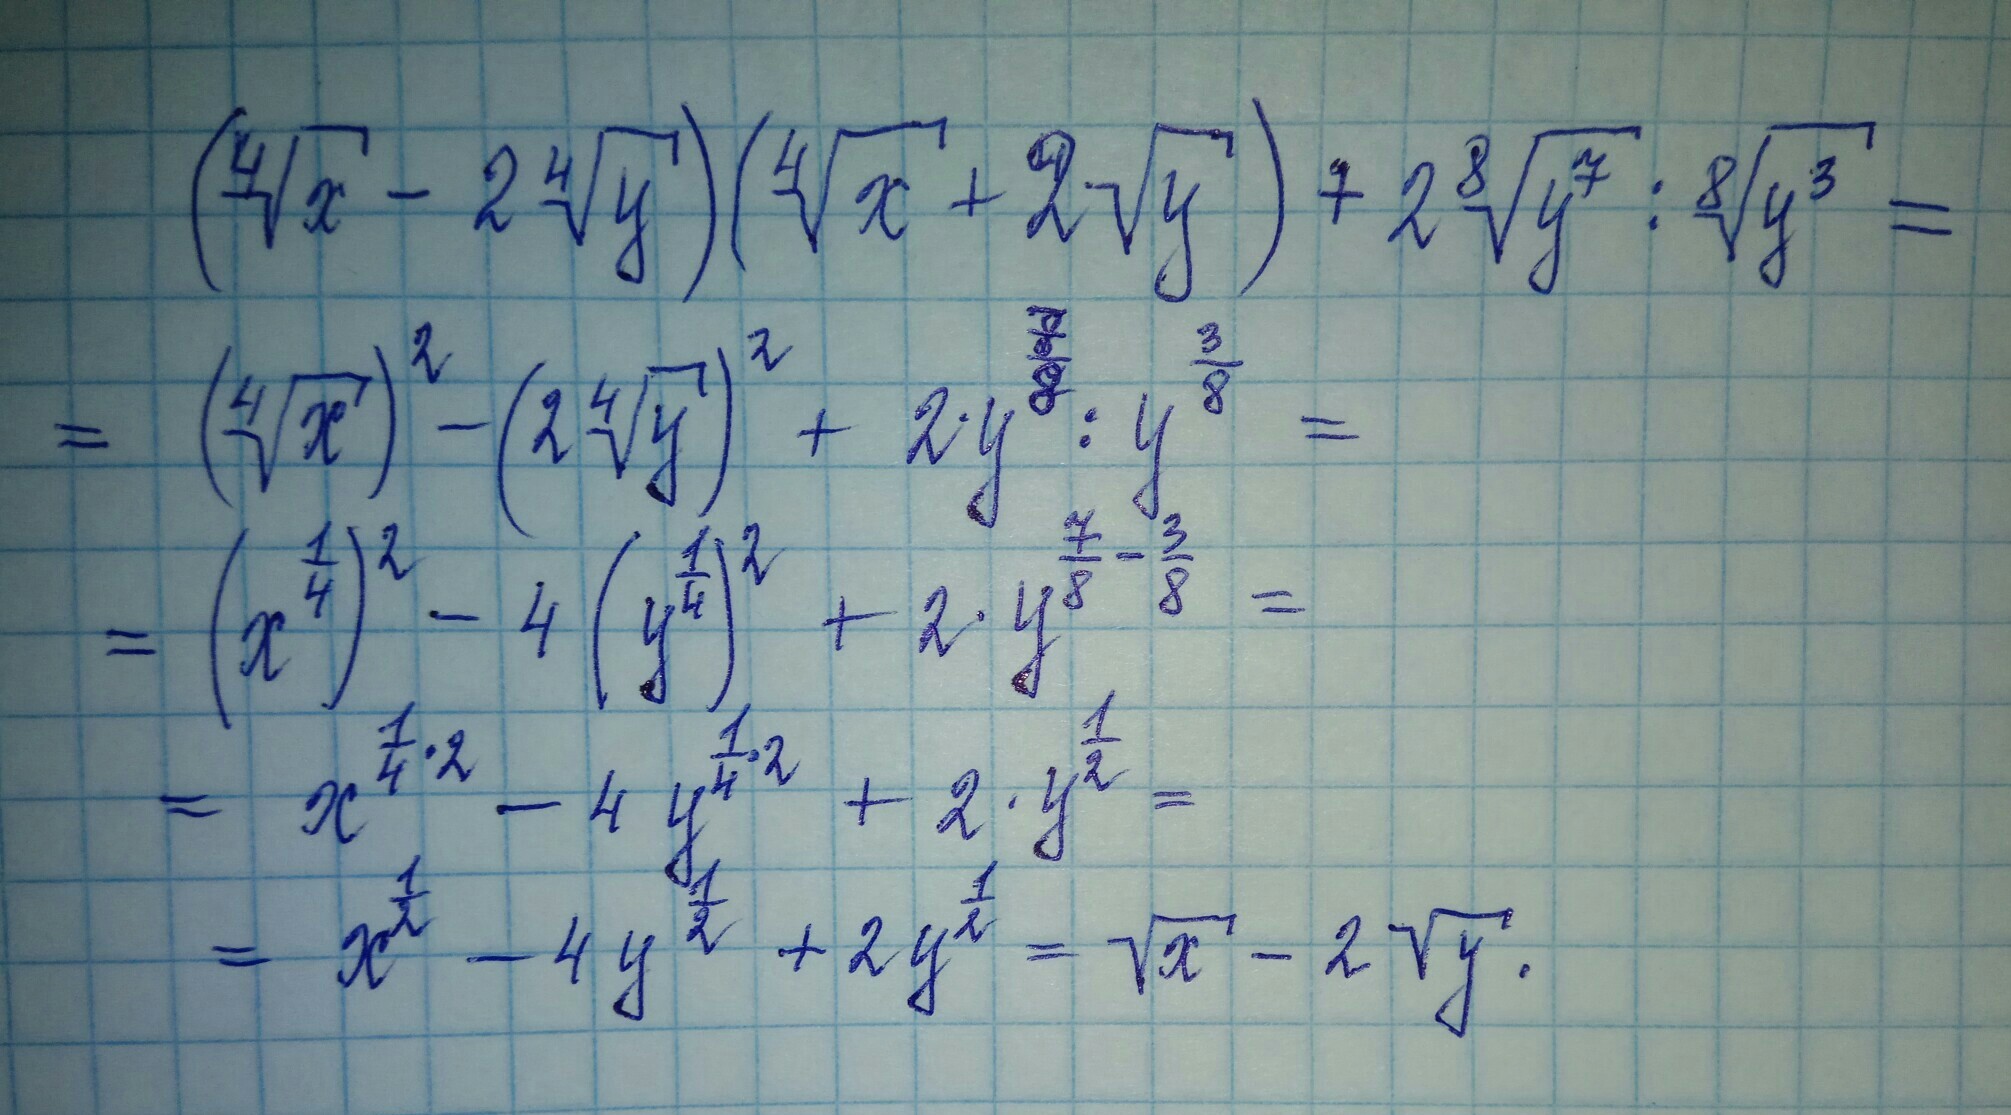 (⁴√x − 2⁴√y)(⁴√x + 2⁴√y) + 2⁸√y⁷ : ⁸√y³ =
= (⁴√x)² − (2⁴√y)² + 2·y^(7/8) : y^(3/8) =
= (x^(1/4))² − 4(y^(1/4))² + 2·y^(7/8 − 3/8) =
= x^(1/4·2) − 4y^(1/4·2) + 2·y^(1/2) =
= x^(1/2) − 4y^(1/2) + 2y^(1/2) = √x − 2√y.